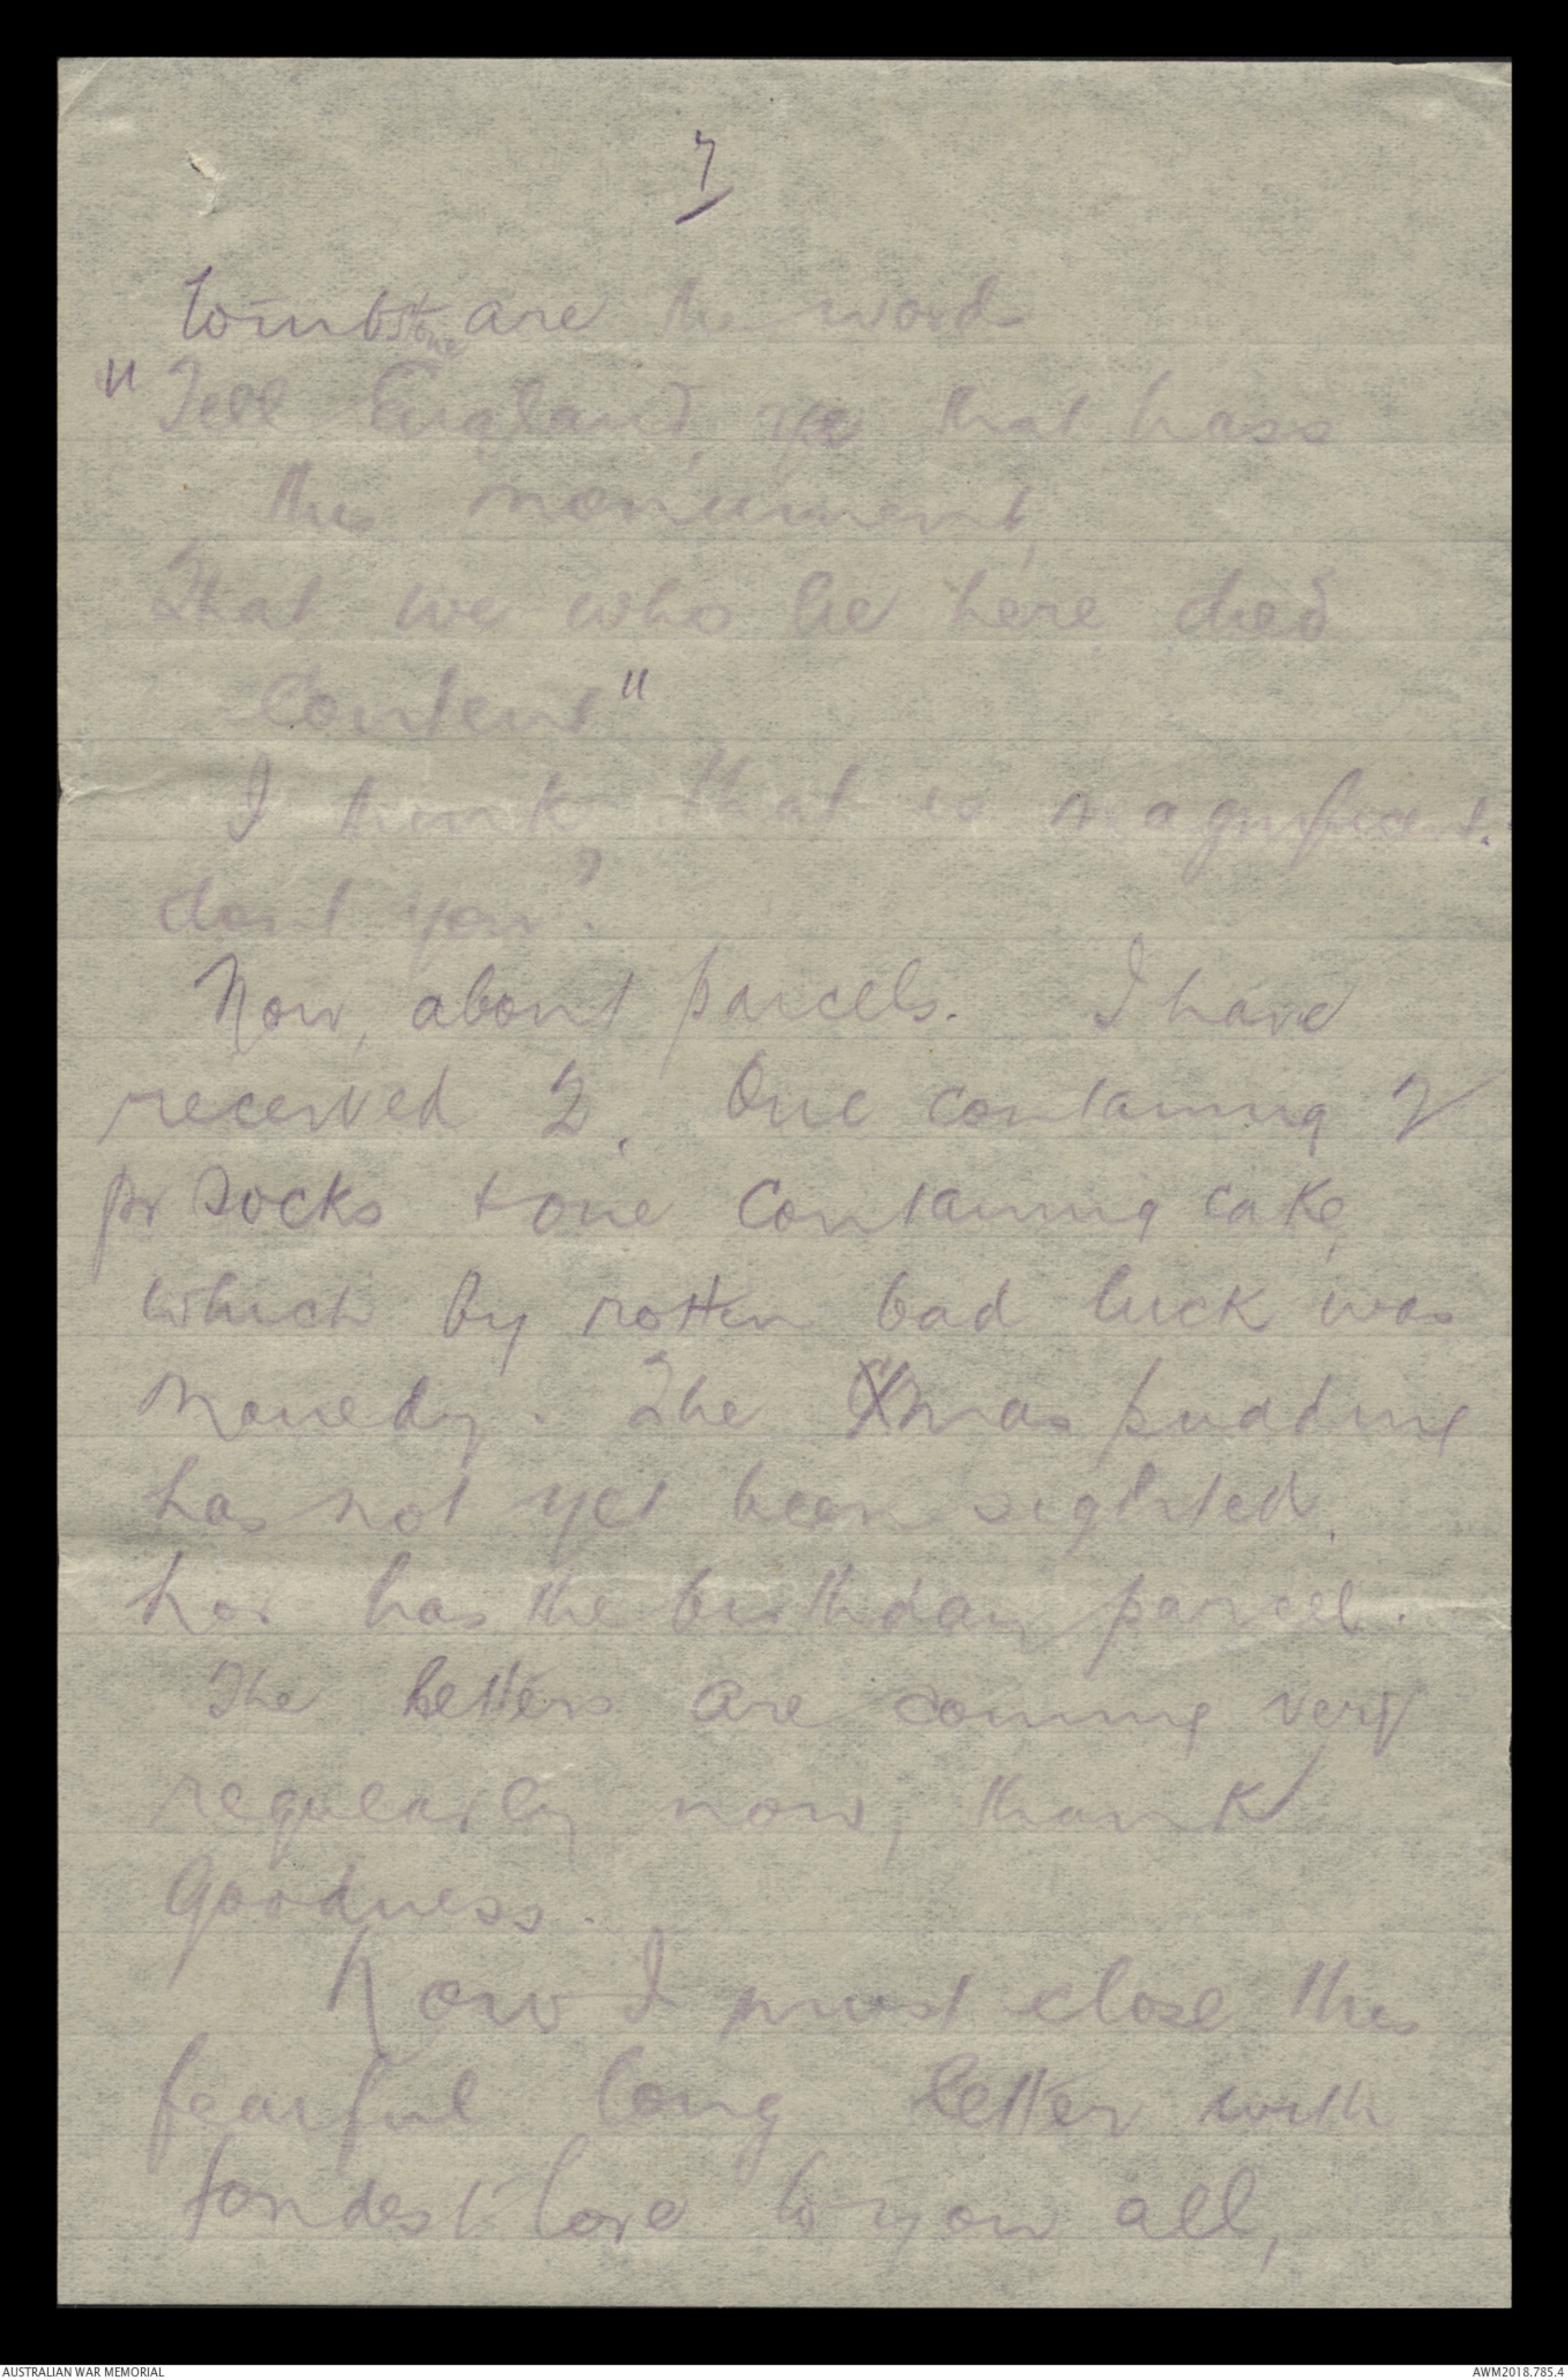 7
tombstone are the words
"Tell England, ye that pass
this monument,
That we who lie here, died
content"
I think that is magnificent.
don't you?
Now, about parcels. I have
received 2. One containing 2
pr socks + one containing cake,
which by rotten bad luck was
The Xmas pudding
has not yet been sighted,
nor has the birthday parcel.
The letters are coming very
regularly now, thank
goodness.
Now I must close this
fearful long letter with
fondest love to you all,
AUSTRALIAN WAR MEMORIAL
AWM2018.785.4